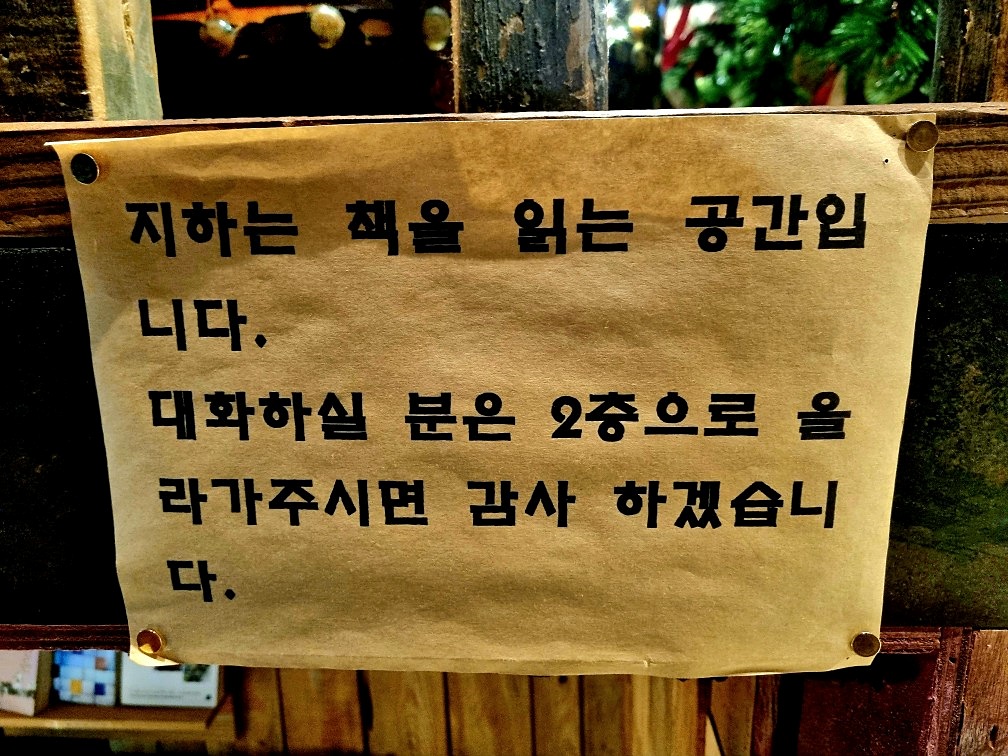 지하는 책을 읽는 공간입
니다.
대화하실 분은 2층으로 올
라가주시면 감사 하겠습니
다.